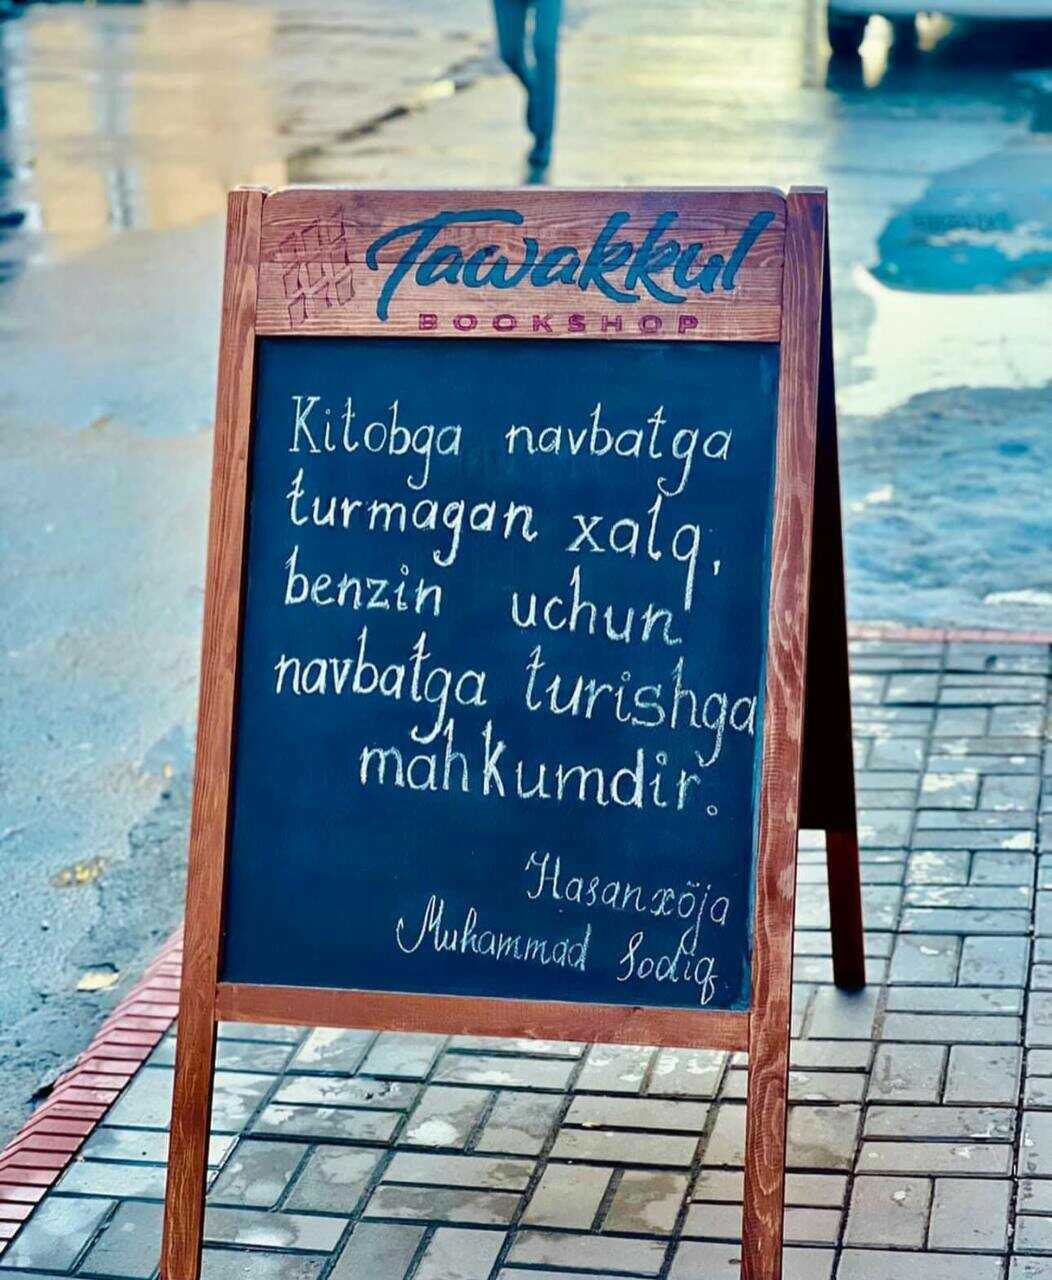 Tawakkul
BOOKSHOP
Kitobga navbatga
turmagan xalq,
benzin uchun
navbatga turishga
mahkumdir.
Hasanxöja
Muhammad Sodiq